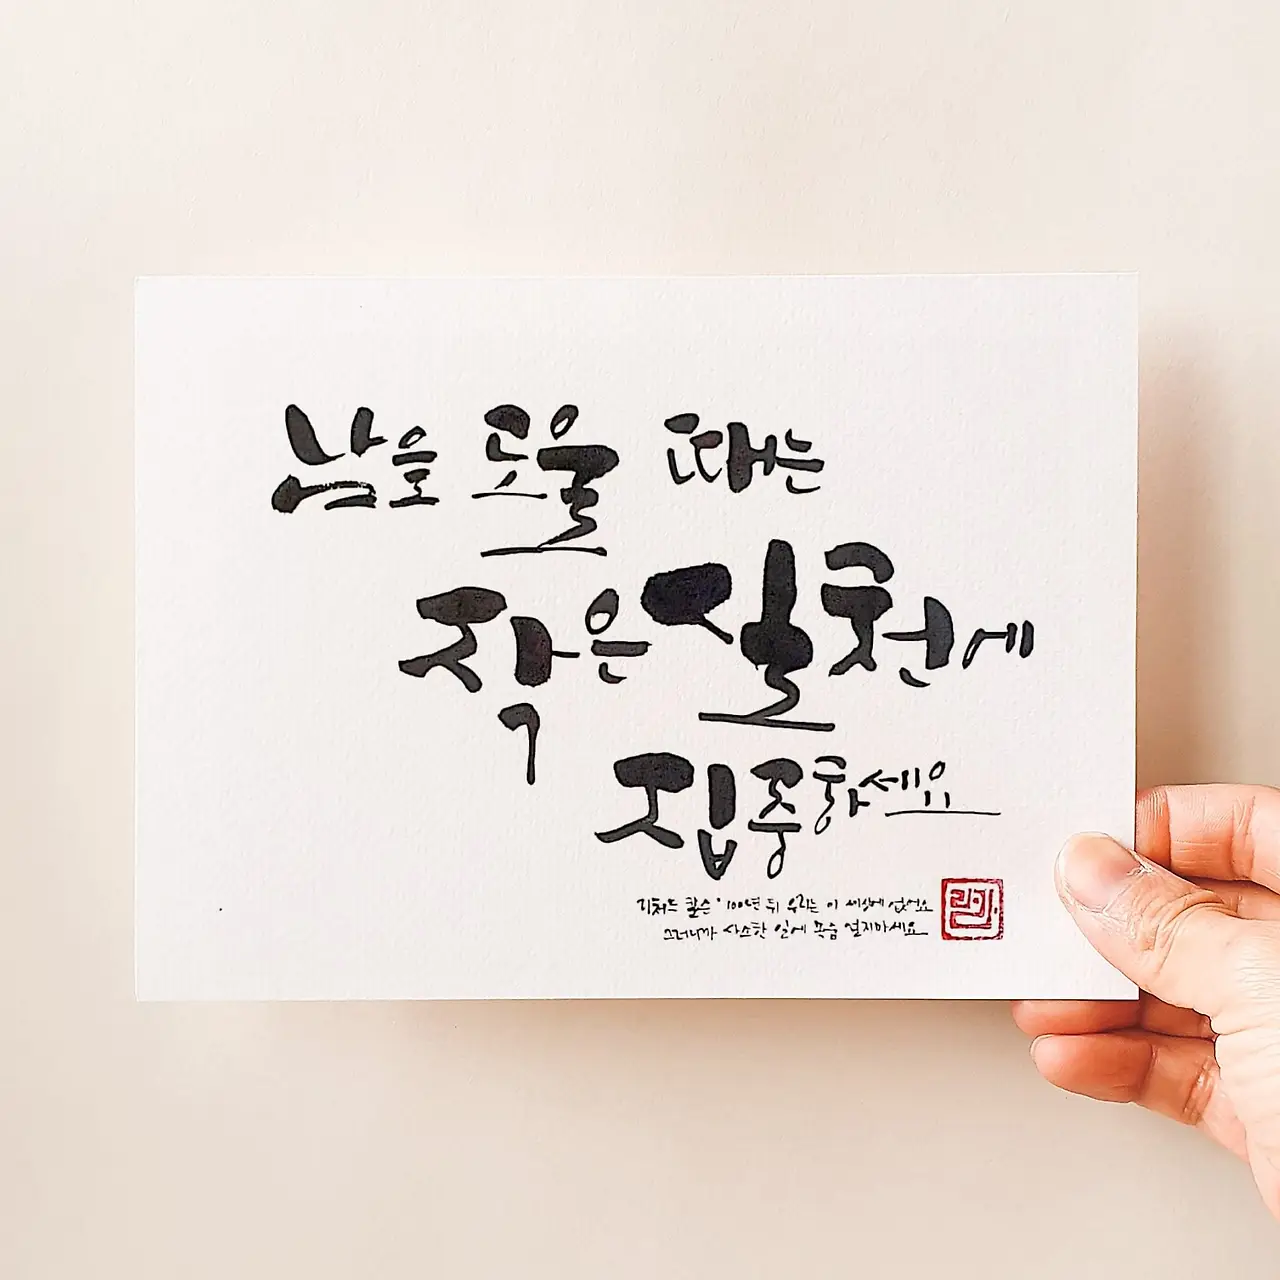 남을 도울 때는
작은 실천에
집중하세요
리처드 칼슨 '100년 뒤 우리는 이 세상에 없어요
그러니까 사소한 일에 목숨 걸지마세요